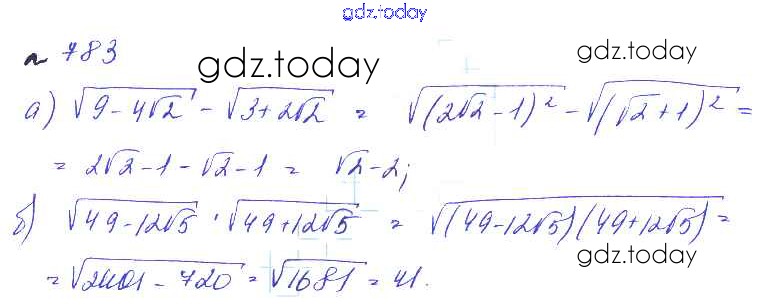 gdz.today
№ 783
gdz.today
gdz.today
а) √(9-4√2) - √(3+2√2) = √((2√2-1)²) - √((√2+1)²) =
= 2√2-1-√2-1 = √2-2;
б) √(49-12√5) · √(49+12√5) = √((49-12√5)(49+12√5)) =
= √(2401-720) = √1681 = 41.
gdz.today